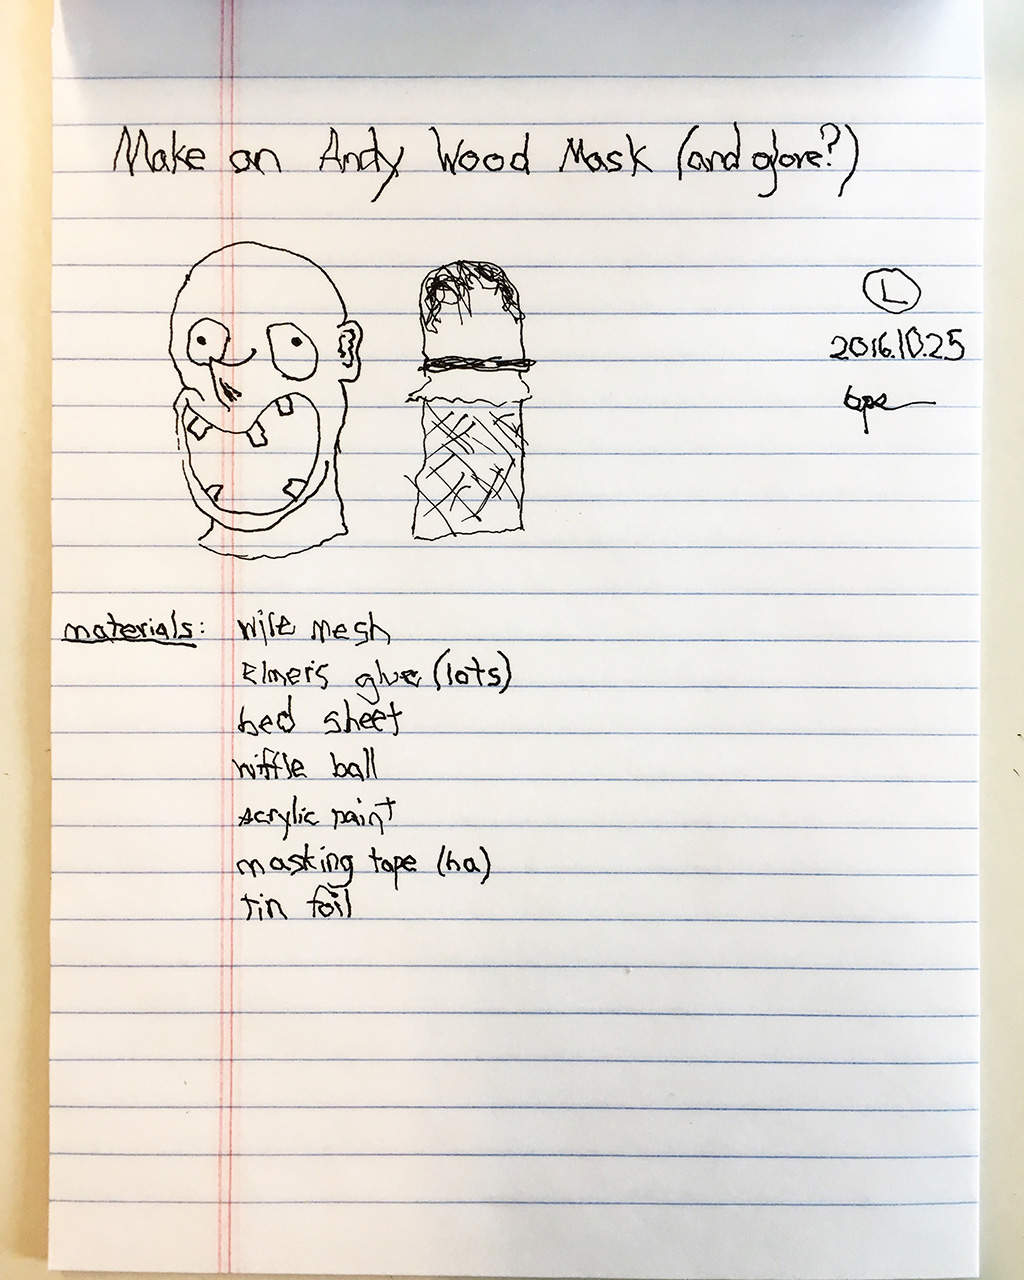 Make an Andy Wood Mask (and glove?)
L
2016.10.25
materials: wire mesh
Elmer's glue (lots)
bed sheet
wiffle ball
acrylic paint
masking tape (ha)
tin foil